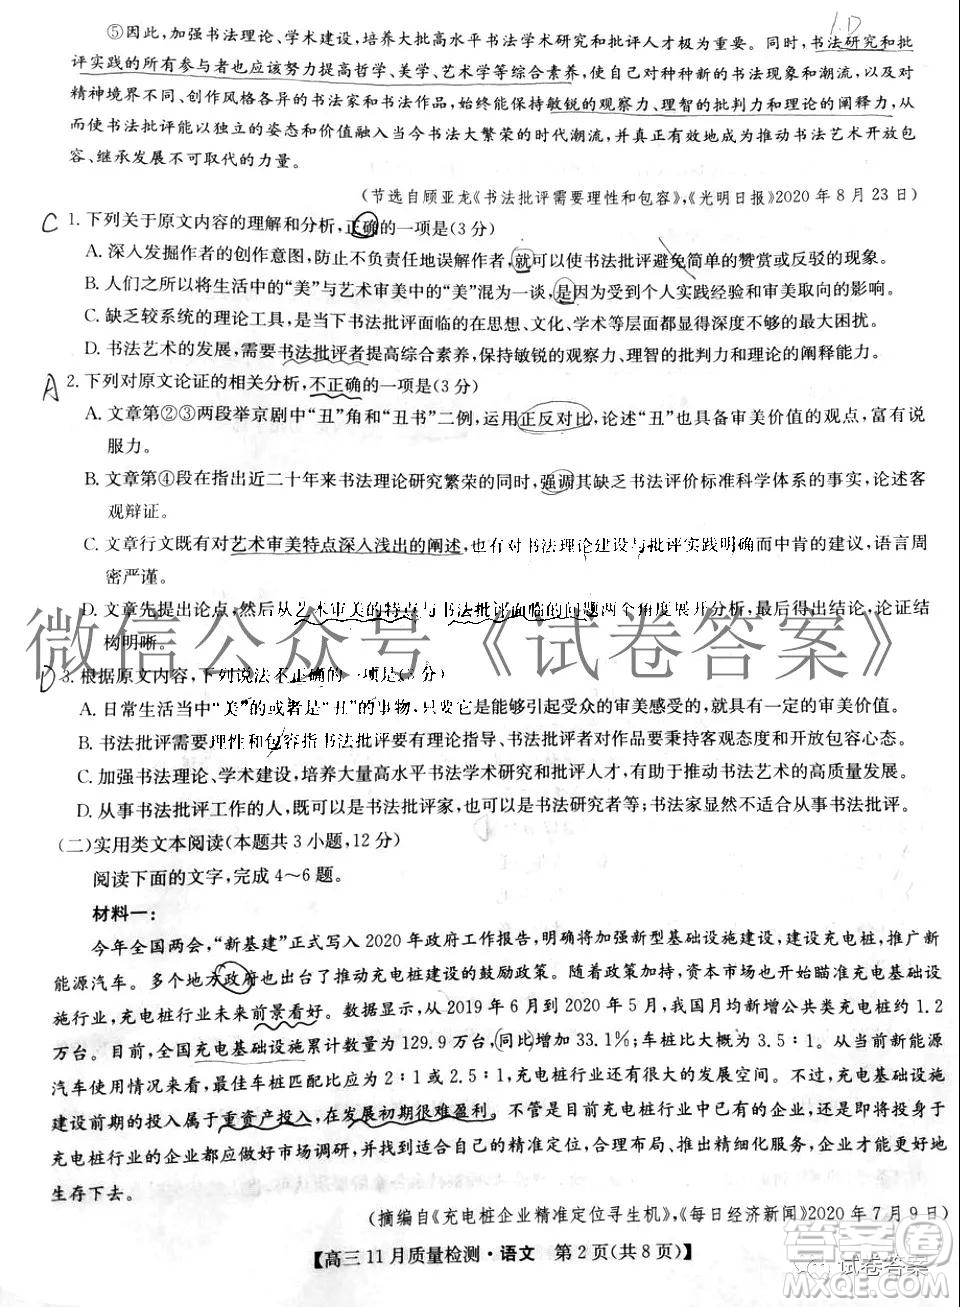 1.D
⑤因此,加强书法理论、学术建设,培养大批高水平书法学术研究和批评人才极为重要。同时,书法研究和批
评实践的所有参与者也应该努力提高哲学、美学、艺术学等综合素养,使自己对种种新的书法现象和潮流,以及对
精神境界不同、创作风格各异的书法家和书法作品,始终能保持敏锐的观察力、理智的批判力和理论的阐释力,从
而使书法批评能以独立的姿态和价值融入当今书法大繁荣的时代潮流,并真正有效地成为推动书法艺术开放包
容、继承发展不可取代的力量。
(节选自顾亚龙《书法批评需要理性和包容》,《光明日报》2020年8月23日)
C 1. 下列关于原文内容的理解和分析,正确的一项是(3分)
A. 深入发掘作者的创作意图,防止不负责任地误解作者,就可以使书法批评避免简单的赞赏或反驳的现象。
B. 人们之所以将生活中的“美”与艺术审美中的“美”混为一谈,是因为受到个人实践经验和审美取向的影响。
C. 缺乏较系统的理论工具,是当下书法批评面临的在思想、文化、学术等层面显得深度不够的最大原因。
D. 书法艺术的发展,需要书法批评者提高综合素养,保持敏锐的观察力、理智的批判力和理论的阐释能力。
A 2. 下列对原文论证的相关分析,不正确的一项是(3分)
A. 文章第②③两段举京剧中“丑”角和“丑书”二例,运用正反对比,论述“丑”也具备审美价值的观点,富有说
服力。
B. 文章第④段在指出近二十年来书法理论研究繁荣的同时,强调其缺乏书法评价标准科学体系的支撑,客
观辩证。
C. 文章行文既有对艺术审美特点深入浅出的阐述,也有对书法理论建设与批评实践明确而中肯的建议,语言周
密严谨。
D. 文章先提出论点,然后从艺术审美的特点与书法批评面临的问题两个角度展开分析,最后得出结论,论证结
构明晰。
D 3. 根据原文内容,下列说法不正确的一项是(3分)
A. 日常生活当中“美”的或者是“丑”的事物,只要它是能够引起受众的审美感受的,就具有一定的审美价值。
B. 书法批评需要理性和包容指书法批评要有理论指导、书法批评对作品要秉持客观态度和开放包容心态。
C. 加强书法理论、学术建设,培养大量高水平书法学术研究和批评人才,有助于推动书法艺术的高质量发展。
D. 从事书法批评工作的人,既可以是书法批评家,也可以是书法研究者等;书法家显然不适合从事书法批评。
(二)实用类文本阅读(本题共3小题,12分)
阅读下面的文字,完成4~6题。
材料一:
今年全国两会,“新基建”正式写入2020年政府工作报告,明确将加强新型基础设施建设,建设充电桩,推广新
能源汽车。多个地方政府也出台了推动充电桩建设的鼓励政策。随着政策的加持,资本市场也开始瞄准充电基础设
施行业,充电桩行业未来前景看好。数据显示,从2019年6月到2020年5月,我国月均新增公共类充电桩约1.2
万台。目前,全国充电基础设施累计数量为129.9万台,同比增加33.1%;车桩比大概为3.5:1。从当前新能源
汽车使用情况来看,最佳车桩匹配比应为2:1或2.5:1,充电桩行业还有很大的发展空间。与此同时,充电桩
建设前期的投入属于重资产投入,在发展初期很难盈利。不管是目前充电桩行业中已有的企业,还是即将投身于
充电桩行业的企业都应做好市场调研,并找到适合自己的精准定位,合理布局、推出精细化服务,企业才能更好地
生存下去。
(摘编自《充电桩企业精准定位寻生机》,《每日经济新闻》2020年7月9日)
【高三11月质量检测·语文 第2页(共8页)】
微信公众号《试卷答案》
试卷答案
答案圈
MXQE.COM